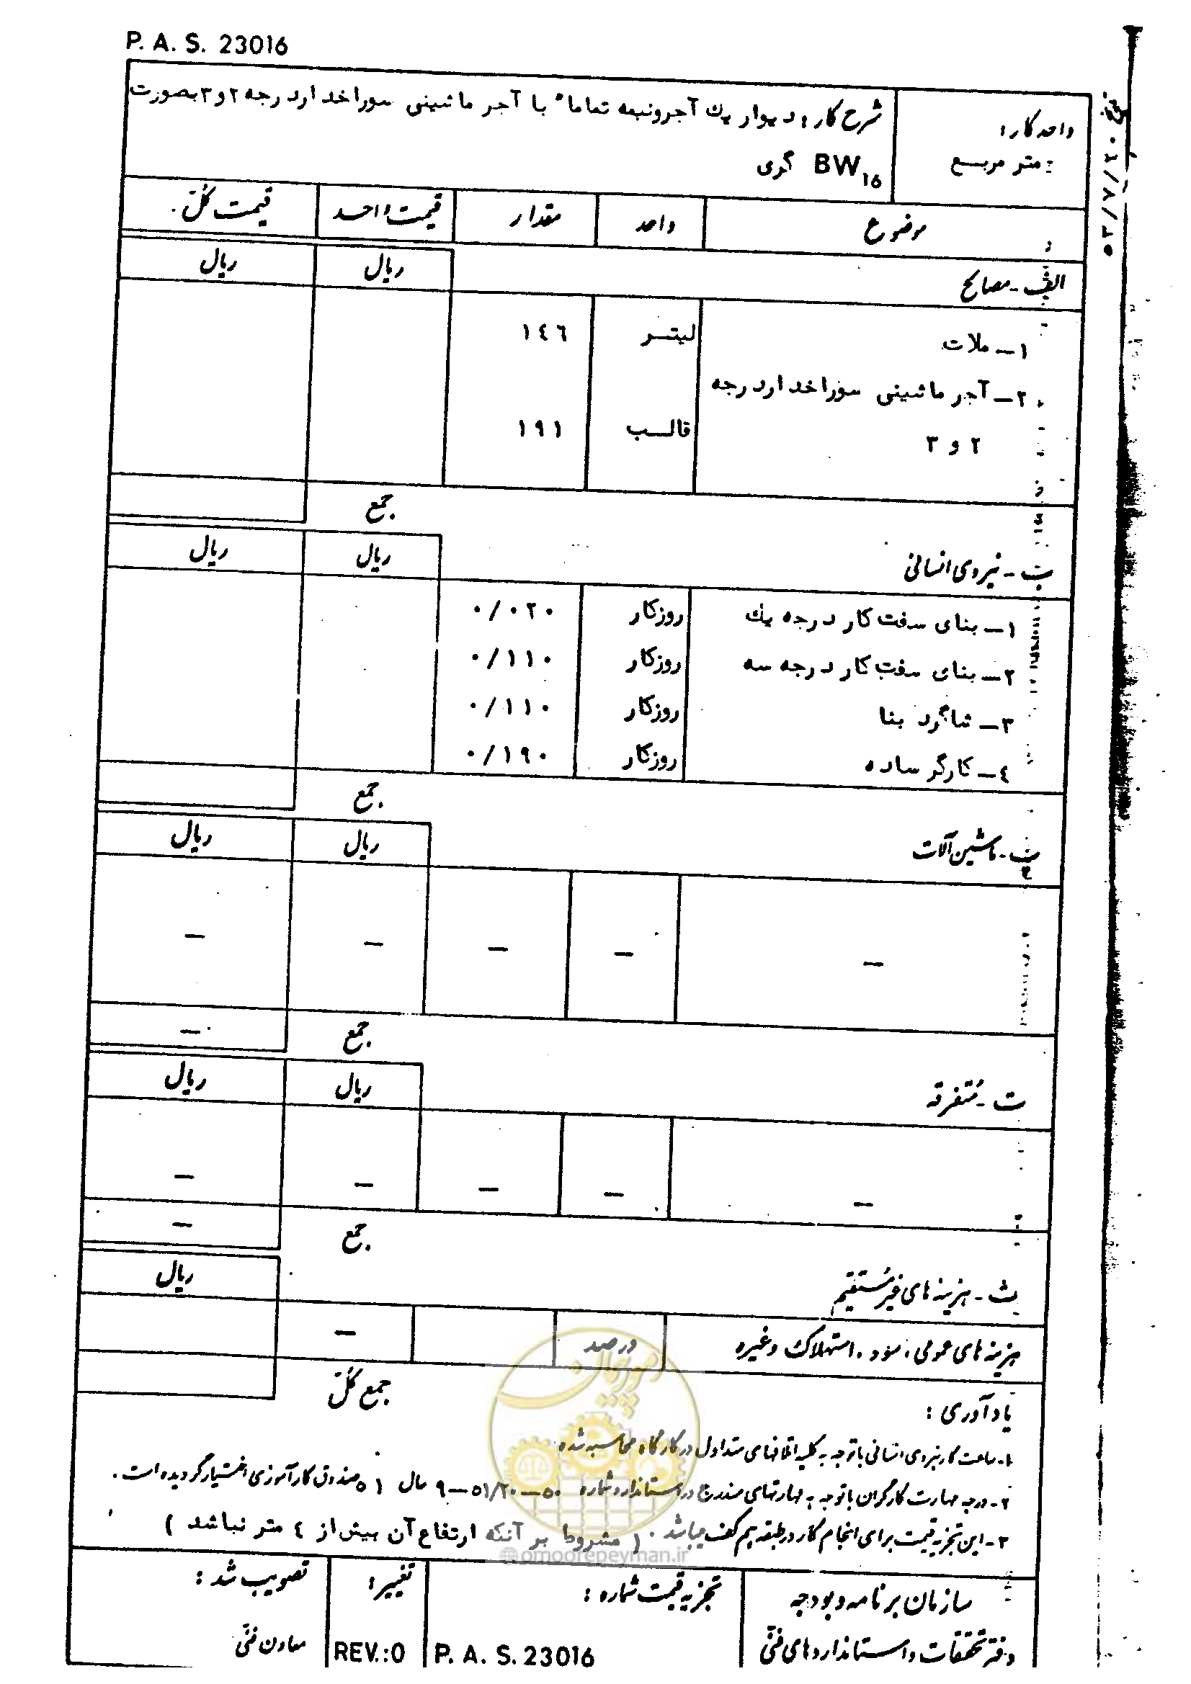 P. A. S. 23016
واحد کار :
متر مربع
شرح کار : دیوار یك آجرونیمه تماما" با آجر ماشینی سوراخدارد رجه ۲و۳ بصورت
BW16 گری
موضوع واحد مقدار قیمت واحد قیمت کُل
الف - مصالح ریال ریال
۱- ملات لیتر ۱٤٦
۲- آجر ماشینی سوراخدارد رجه
۲ و ۳ قالب ۱۹۱
جمع
ب - نیروی انسانی ریال ریال
۱- بنای سفت کار د رجه یك روزکار ۰/۰۲۰
۲- بنای سفت کار د رجه سه روزکار ۰/۱۱۰
۳- شاگرد بنا روزکار ۰/۱۱۰
٤- کارگر ساده روزکار ۰/۱۹۰
جمع
پ - ماشین آلات ریال ریال
– – – – –
جمع –
ت - مُتفرقه ریال ریال
– – – – –
جمع –
ث - هزینه های غیرمُستقیم ریال
هزینه های عمومی ، سود ، استهلاک وغیره درصد –
جمع کُل
یادآوری :
۱- ساعت کار نیروی انسانی با توجه به کلیه اتلافهای متداول در کارگاه محاسبه شده
۲- درجه مهارت کارگران با توجه به مهارتهای مندرج در استاندارد شماره ۵۰-۵۱/۲۰-۹ سال ۵۱ صندوق کارآموزی اختیار گردیده است .
۳- این تجزیه قیمت برای انجام کار در طبقه هم کف میباشد . ( مشروط بر آنکه ارتفاع آن بیش از ٤ متر نباشد )
امور پیمان
@omoorepeyman.ir
سازمان برنامه و بودجه
دفتر تحقیقات و استانداردهای فنّی
تجزیه قیمت شماره :
P. A. S. 23016
تغییر :
REV.:0
تصویب شد :
معاون فنّی